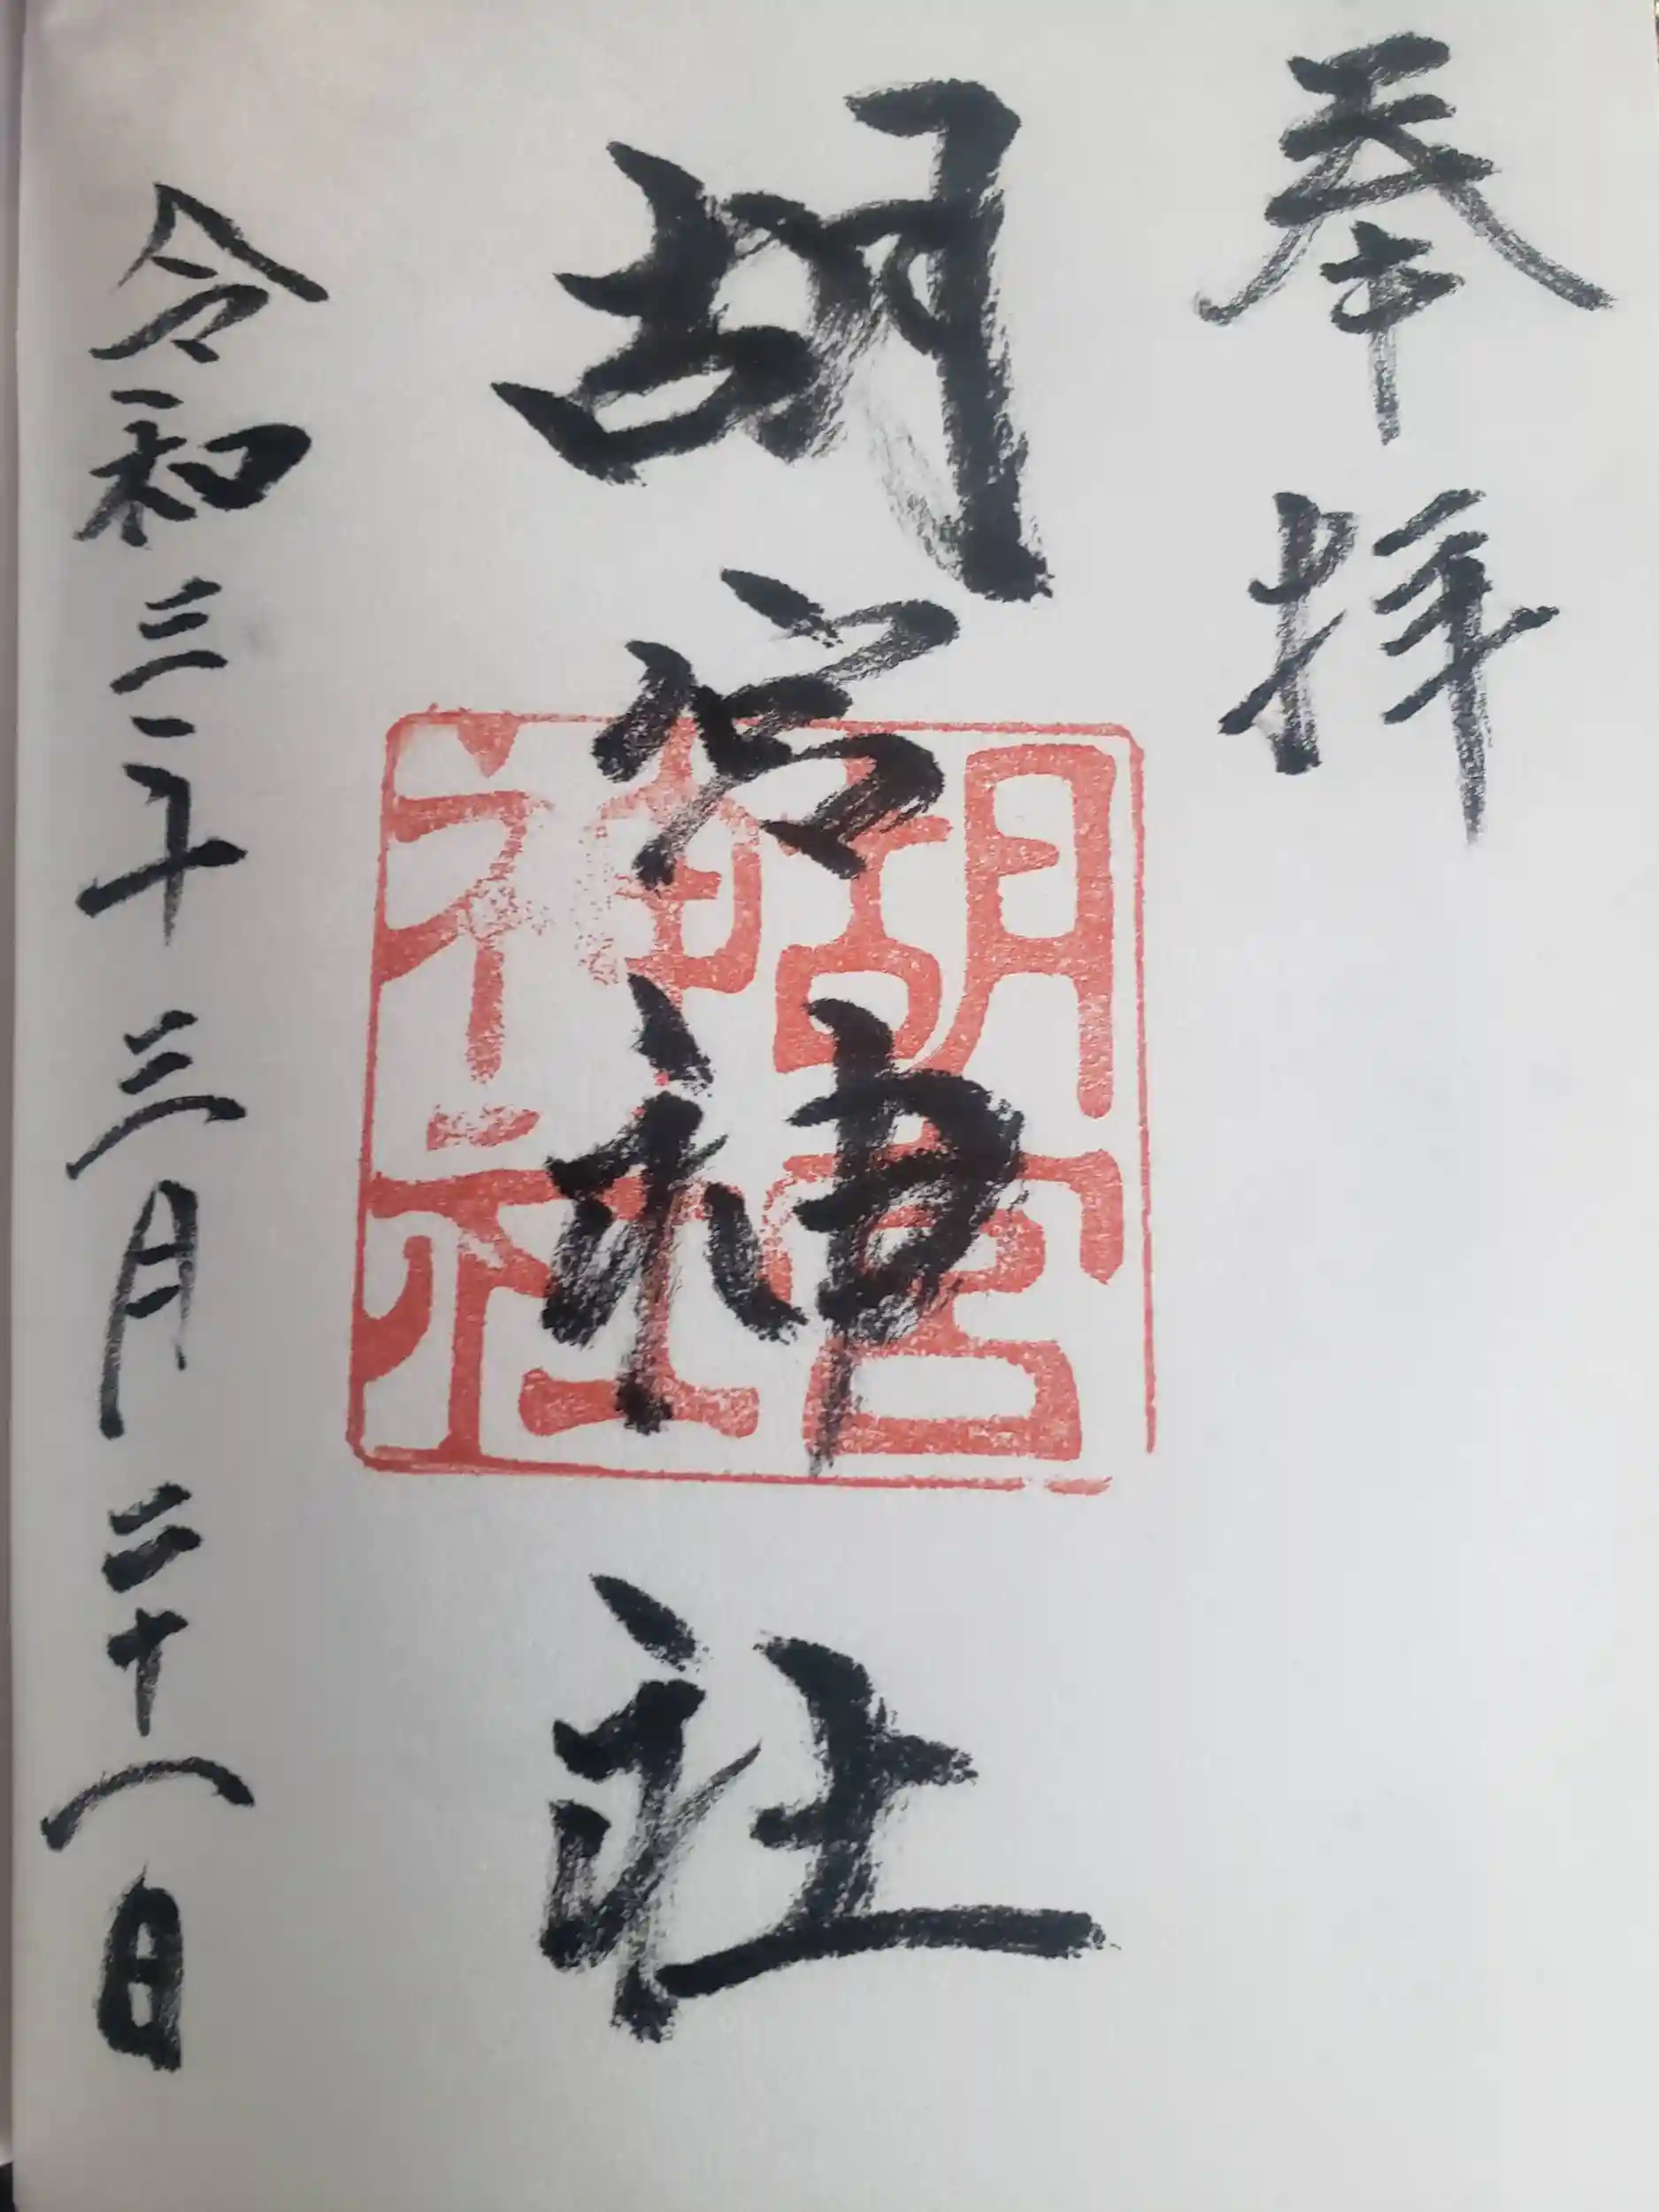 奉拝
胡宮神社
胡宮神社
令和三年三月二十八日